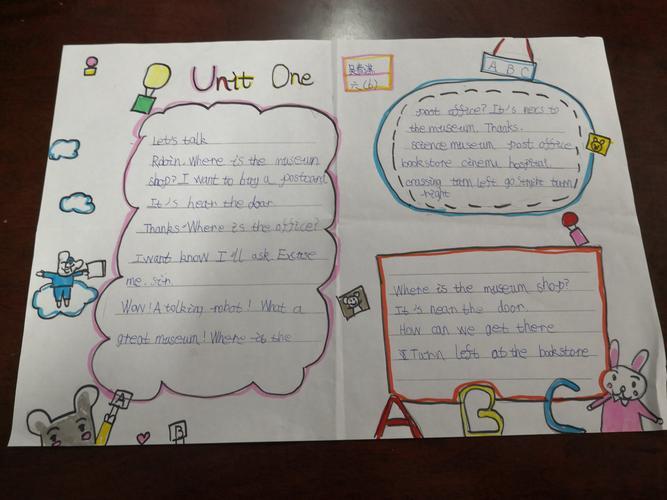 Unit One
Let's talk
Robin. Where is the museum
shop? I want to buy a postcard
It's hear the door
Thanks. Where is the office?
I want know I'll ask. Excuse
me. sir.
Wow! A talking robot! What a
great museum! Where is the
六(6)
A B C
post office? It's next to
the museum. Thanks.
science museum post office
bookstore cinema hospital
crossing turn left go turn
right
Where is the museum shop?
It is near the door.
How can we get there
Turn left at the bookstore
A B C
A
B